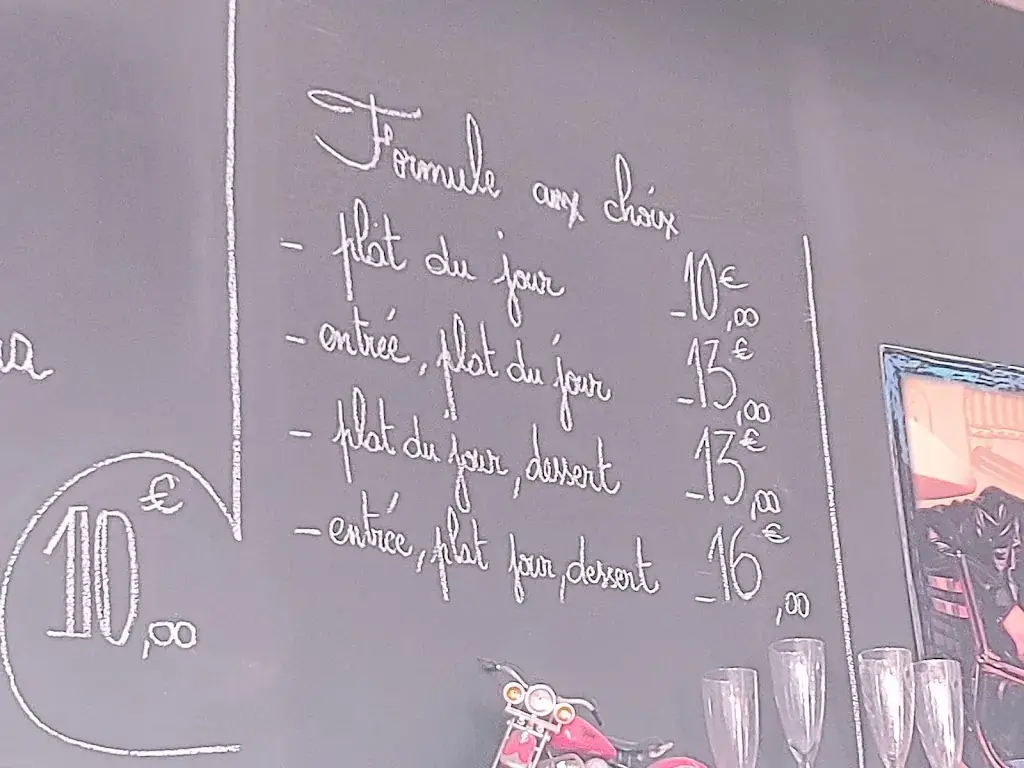 Formule aux choix
- plat du jour 10€,00
- entrée, plat du jour 13€,00
- plat du jour, dessert 13€,00
- entrée, plat jour, dessert 16€,00
10€,00